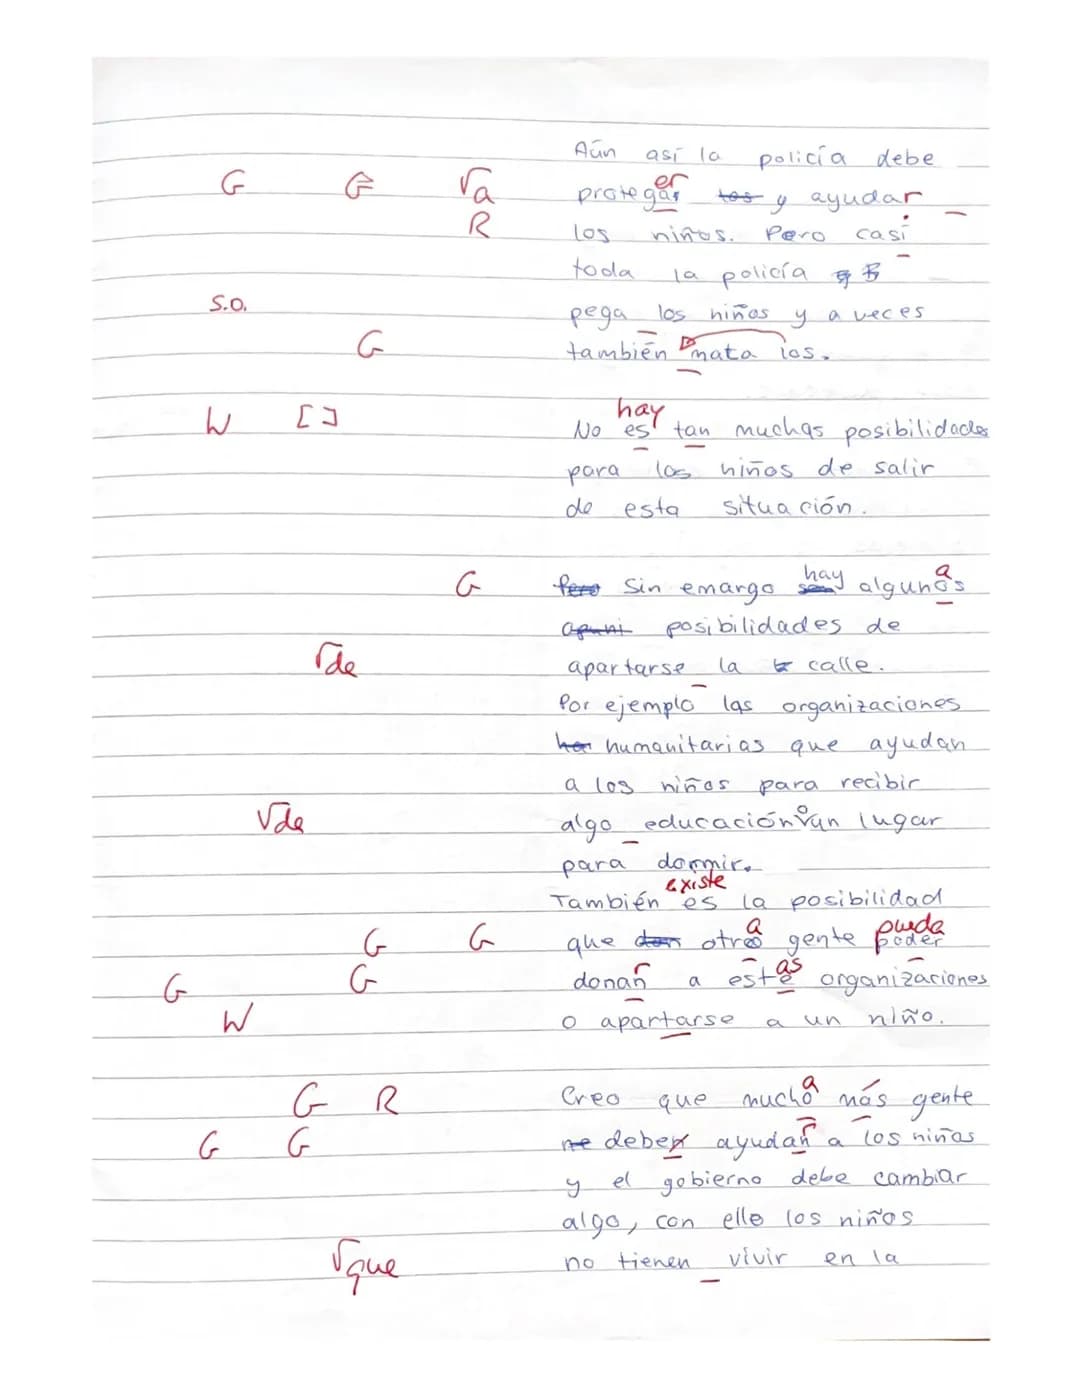 Aún así la policía debe
G G √a er
protegar tos y ayudar
R
los niños. Pero casí
toda la policía
S.O.
pega los niños y a veces
G
también mata los.
W [ ] hay
No es tan muchas posibilidades
para los niños de salir
de esta situación.
G hay a
pero Sin emargo son algunos
apuni posibilidades de
√de
apartarse la calle.
Por ejemplo las organizaciones
humanitarias que ayudan
a los niños para recibir
√de o
algo educación un lugar
para dormir.
existe
También es la posibilidad
G G a pueda
que otros gente poder
G G r as
donan a este organizaciones
W
o apartarse a un niño.
G R a
Creo que mucho más gente
G G r
ne deben ayudan a los niños
y el gobierno debe cambiar
algo, con ello los niños
√que
no tienen vivir en la